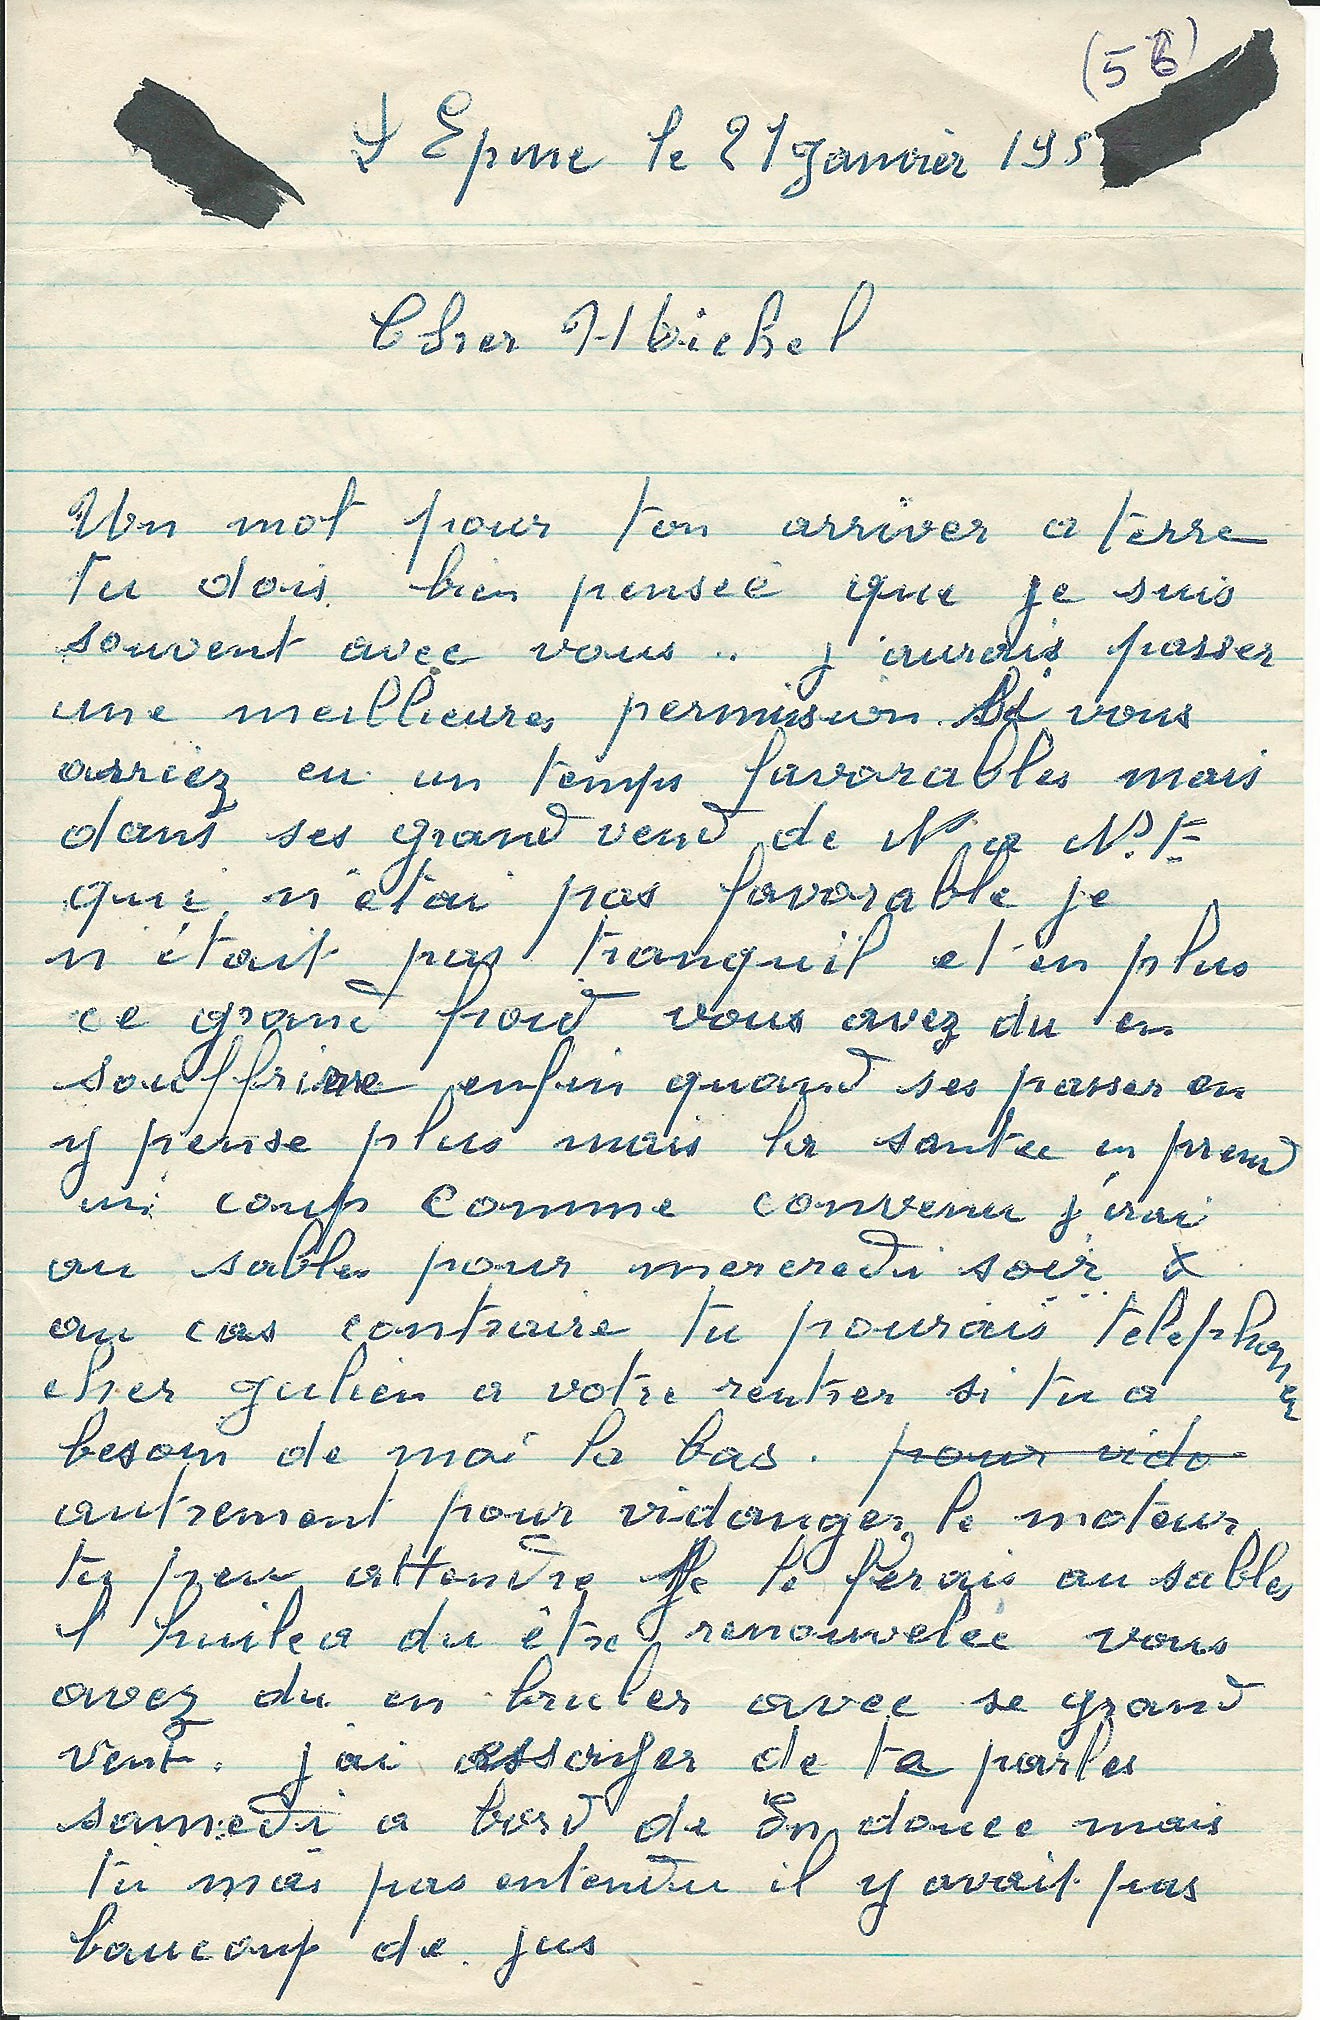 (56)
L'Epine le 21 janvier 195
Cher Michel
Un mot pour ton arriver a terre
tu dois bien penseé que je suis
souvent avec vous .. j'aurais passer
une meillieures permision si vous
auriez eu un temps favorables mais
dans ses grand vend de N a N.E
qui n'étai pas favorable je
n'était pas tranquil et en plus
ce grand froid vous avez du en
souffrire enfin quand ses passer on
y pense plus mais la santée en prend
un coup Comme convenu j'irai
au sables pour mercredi soir
au cas contraire tu pourais telephoner
cher julien a votre rentrer si tu a
besoin de moi la bas. pour vida
autrement pour vidanger le moteur
tu peu attendre Je le ferais au sables
l'huile a du être renouvelée vous
avez du en bruler avec se grand
vent. j'ai essayer de te parler
samedi a bord de En douce mais
tu m'ai pas entendu il y avait pas
baucoup de jus